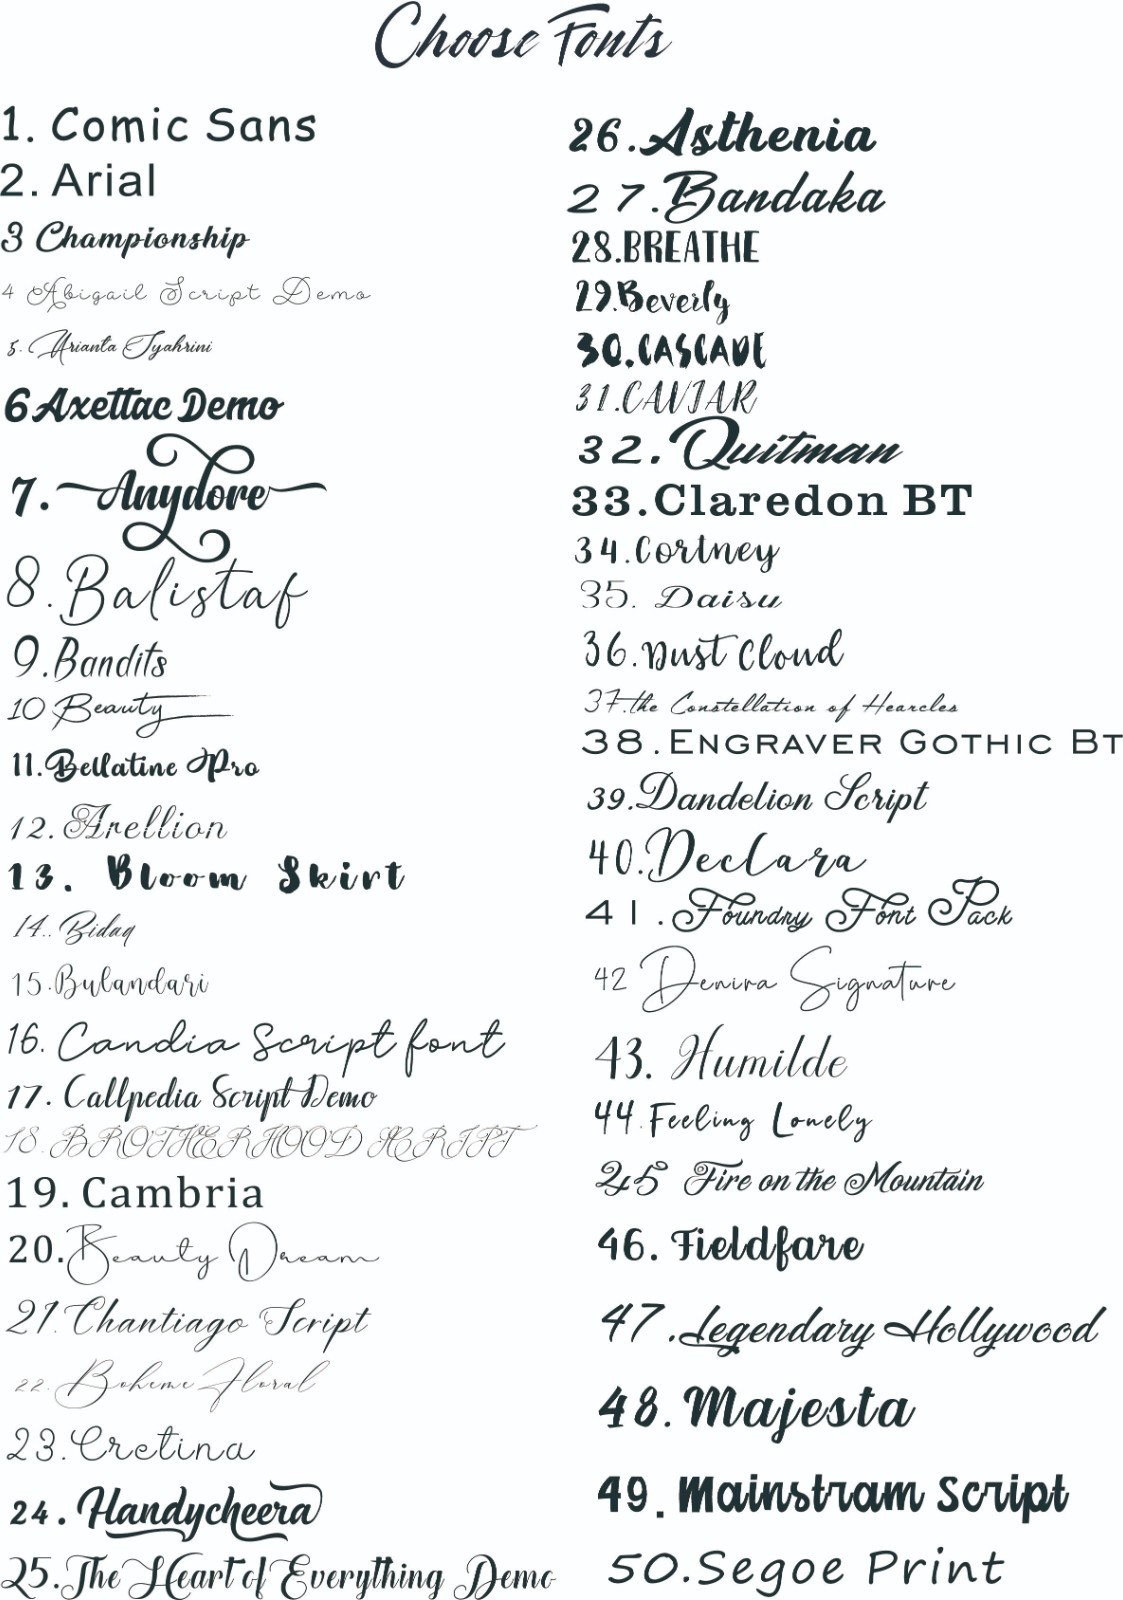 Choose Fonts
1. Comic Sans
2. Arial
3 Championship
4 Abigail Script Demo
5. Arianta Syahrini
6 Axettac Demo
7. Anydore
8. Balistaf
9. Bandits
10 Beauty
11. Bellatine Pro
12. Arellion
13. Bloom Skirt
14.. Bidaq
15. Bulandari
16. Candia Script font
17. Callpedia Script Demo
18. BROTHERHOOD SCRIPT
19. Cambria
20. Beauty Dream
21. Chantiago Script
22. Boheme Floral
23. Cretina
24. Handycheera
25. The Heart of Everything Demo
26. Asthenia
27. Bandaka
28. BREATHE
29. Beverly
30. CASCADE
31. CAVIAR
32. Quitman
33. Claredon BT
34. Cortney
35. Daisu
36. Dust Cloud
37. the Constellation of Hearcles
38. ENGRAVER GOTHIC BT
39. Dandelion Script
40. Declara
41. Foundry Font Pack
42 Denira Signature
43. Humilde
44. Feeling Lonely
45 Fire on the Mountain
46. Fieldfare
47. Legendary Hollywood
48. Majesta
49. Mainstram Script
50. Segoe Print